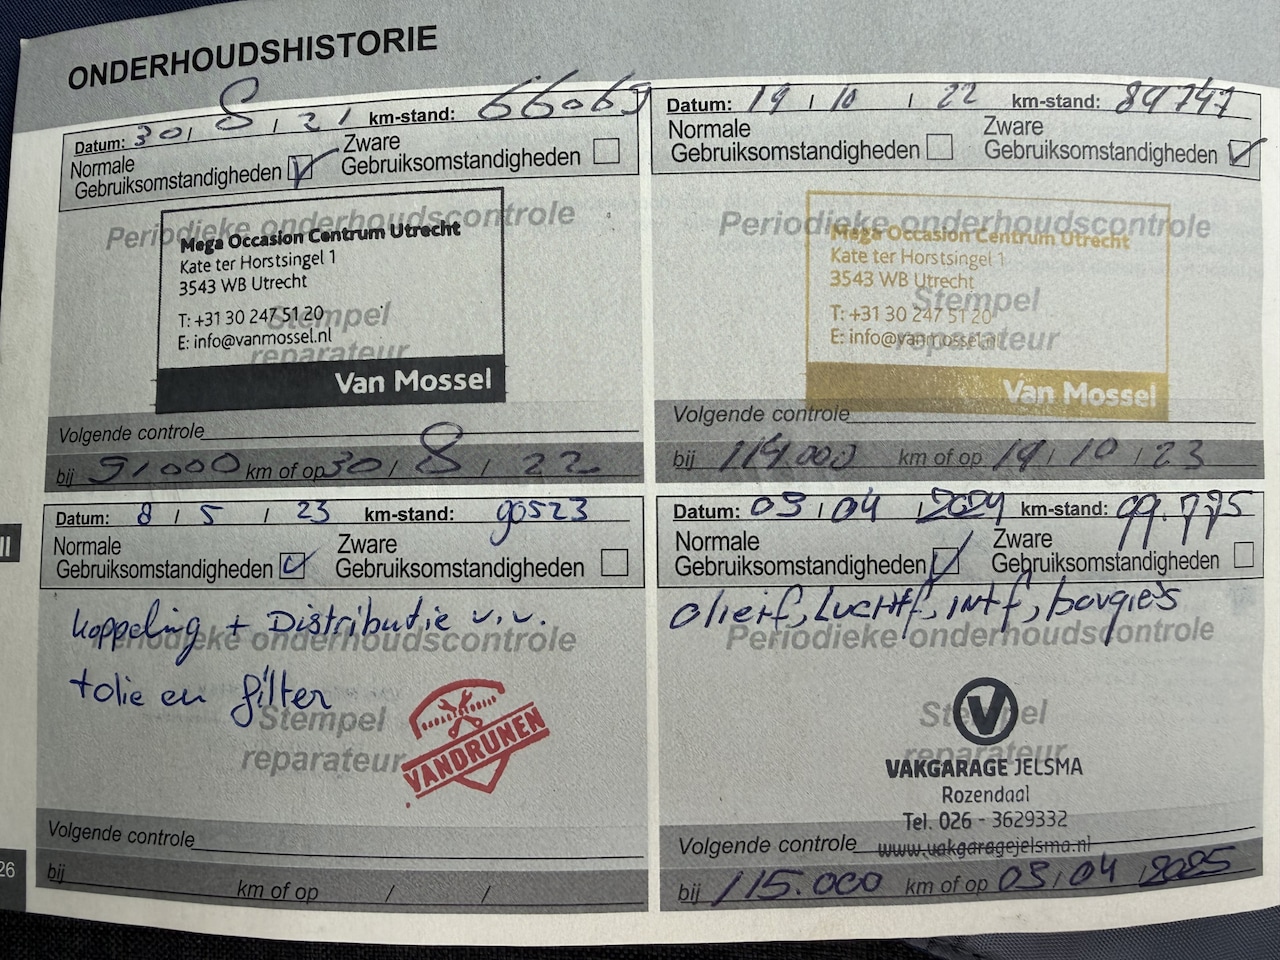 ONDERHOUDSHISTORIE
Datum: 30 / 8 / 21 km-stand: 66069
Normale Gebruiksomstandigheden Zware Gebruiksomstandigheden
Periodieke onderhoudscontrole
Mega Occasion Centrum Utrecht
Kate ter Horstsingel 1
3543 WB Utrecht
T: +31 30 247 51 20
Stempel
E: info@vanmossel.nl
reparateur
Van Mossel
Volgende controle
bij 91000 km of op 30 / 8 / 22
Datum: 19 / 10 / 22 km-stand: 84747
Normale Gebruiksomstandigheden Zware Gebruiksomstandigheden
Periodieke onderhoudscontrole
Mega Occasion Centrum Utrecht
Kate ter Horstsingel 1
3543 WB Utrecht
Stempel
T: +31 30 247 51 20
E: info@vanmossel.nl
reparateur
Van Mossel
Volgende controle
bij 114.000 km of op 19 / 10 / 23
II
Datum: 8 / 5 / 23 km-stand: 90523
Normale Gebruiksomstandigheden Zware Gebruiksomstandigheden
koppeling + Distributie v.v.
Periodieke onderhoudscontrole
+olie en filter
Stempel
reparateur
VANDRUNEN
Volgende controle
bij km of op / /
26
Datum: 03 / 04 / 2024 km-stand: 99.775
Normale Gebruiksomstandigheden Zware Gebruiksomstandigheden
olieif, Luchtf, intf, bougies
Periodieke onderhoudscontrole
Stempel
V
reparateur
VAKGARAGE JELSMA
Rozendaal
Tel. 026 - 3629332
Volgende controle www.vakgaragejelsma.nl
bij 115.000 km of op 03 / 04 / 2025